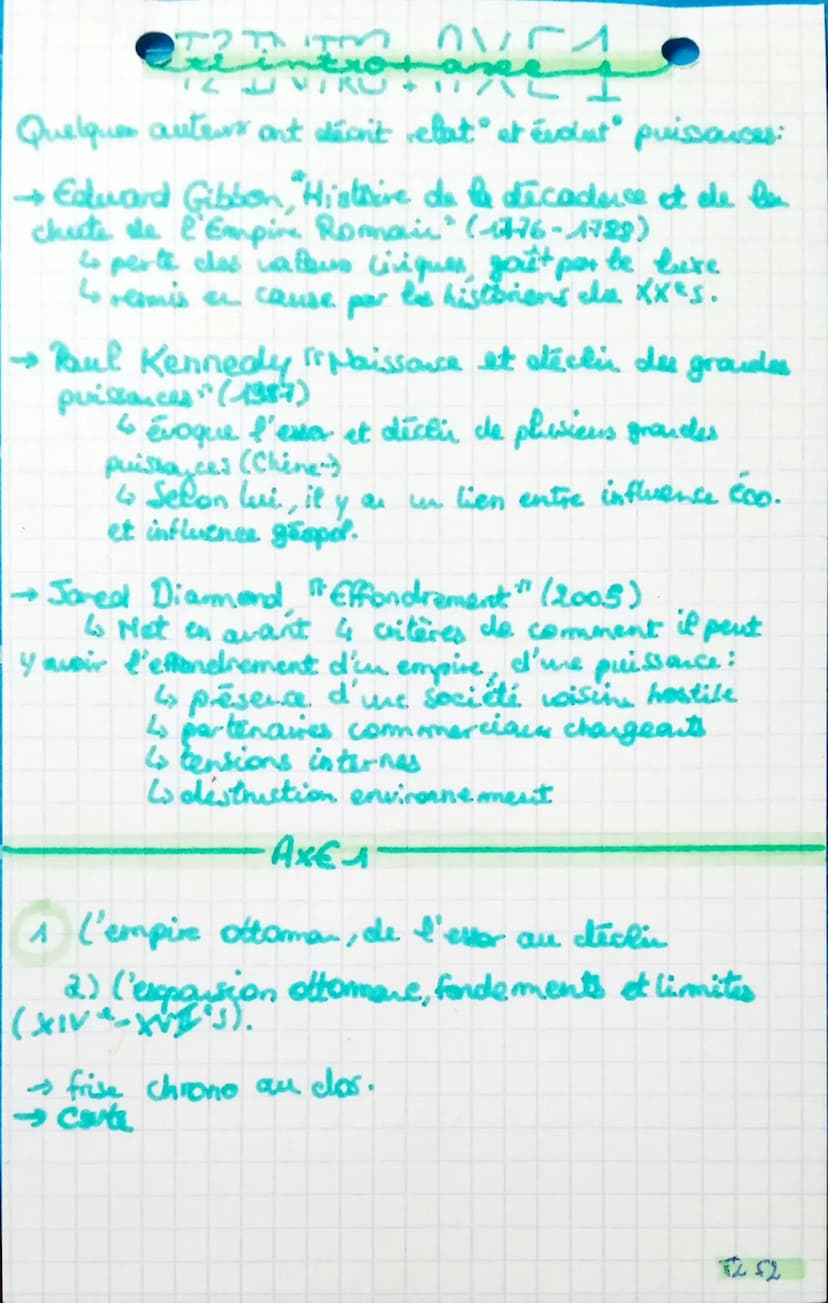 T2 INTRO + AXE 1
T2 intro + axe 1
Quelques auteurs ont décrit relat° et évolut° puissances:
→ Edward Gibbon, "Histoire de la décadence et de la
chute de l'Empire Romain" (1776-1788)
↳ perte des valeurs civiques, goût par le luxe
↳ remis en cause par les historiens du XXe s.
→ Paul Kennedy, "Naissance et déclin des grandes
puissances" (1987)
↳ évoque l'essor et déclin de plusieurs grandes
puissances (Chine...)
↳ Selon lui, il y a un lien entre influence éco.
et influence géopol.
→ Jared Diamond, "Effondrement" (2005)
↳ Met en avant 4 critères de comment il peut
y avoir l'effondrement d'un empire, d'une puissance:
↳ présence d'une société voisine hostile
↳ partenaires commerciaux changeants
↳ tensions internes
↳ déstruction environnement
AXE 1
1 L'empire ottoman, de l'essor au déclin
a) L'expansion ottomane, fondements et limites
(XIVe-XVIIe s).
→ frise chrono au dos.
→ Carte
T2 S2